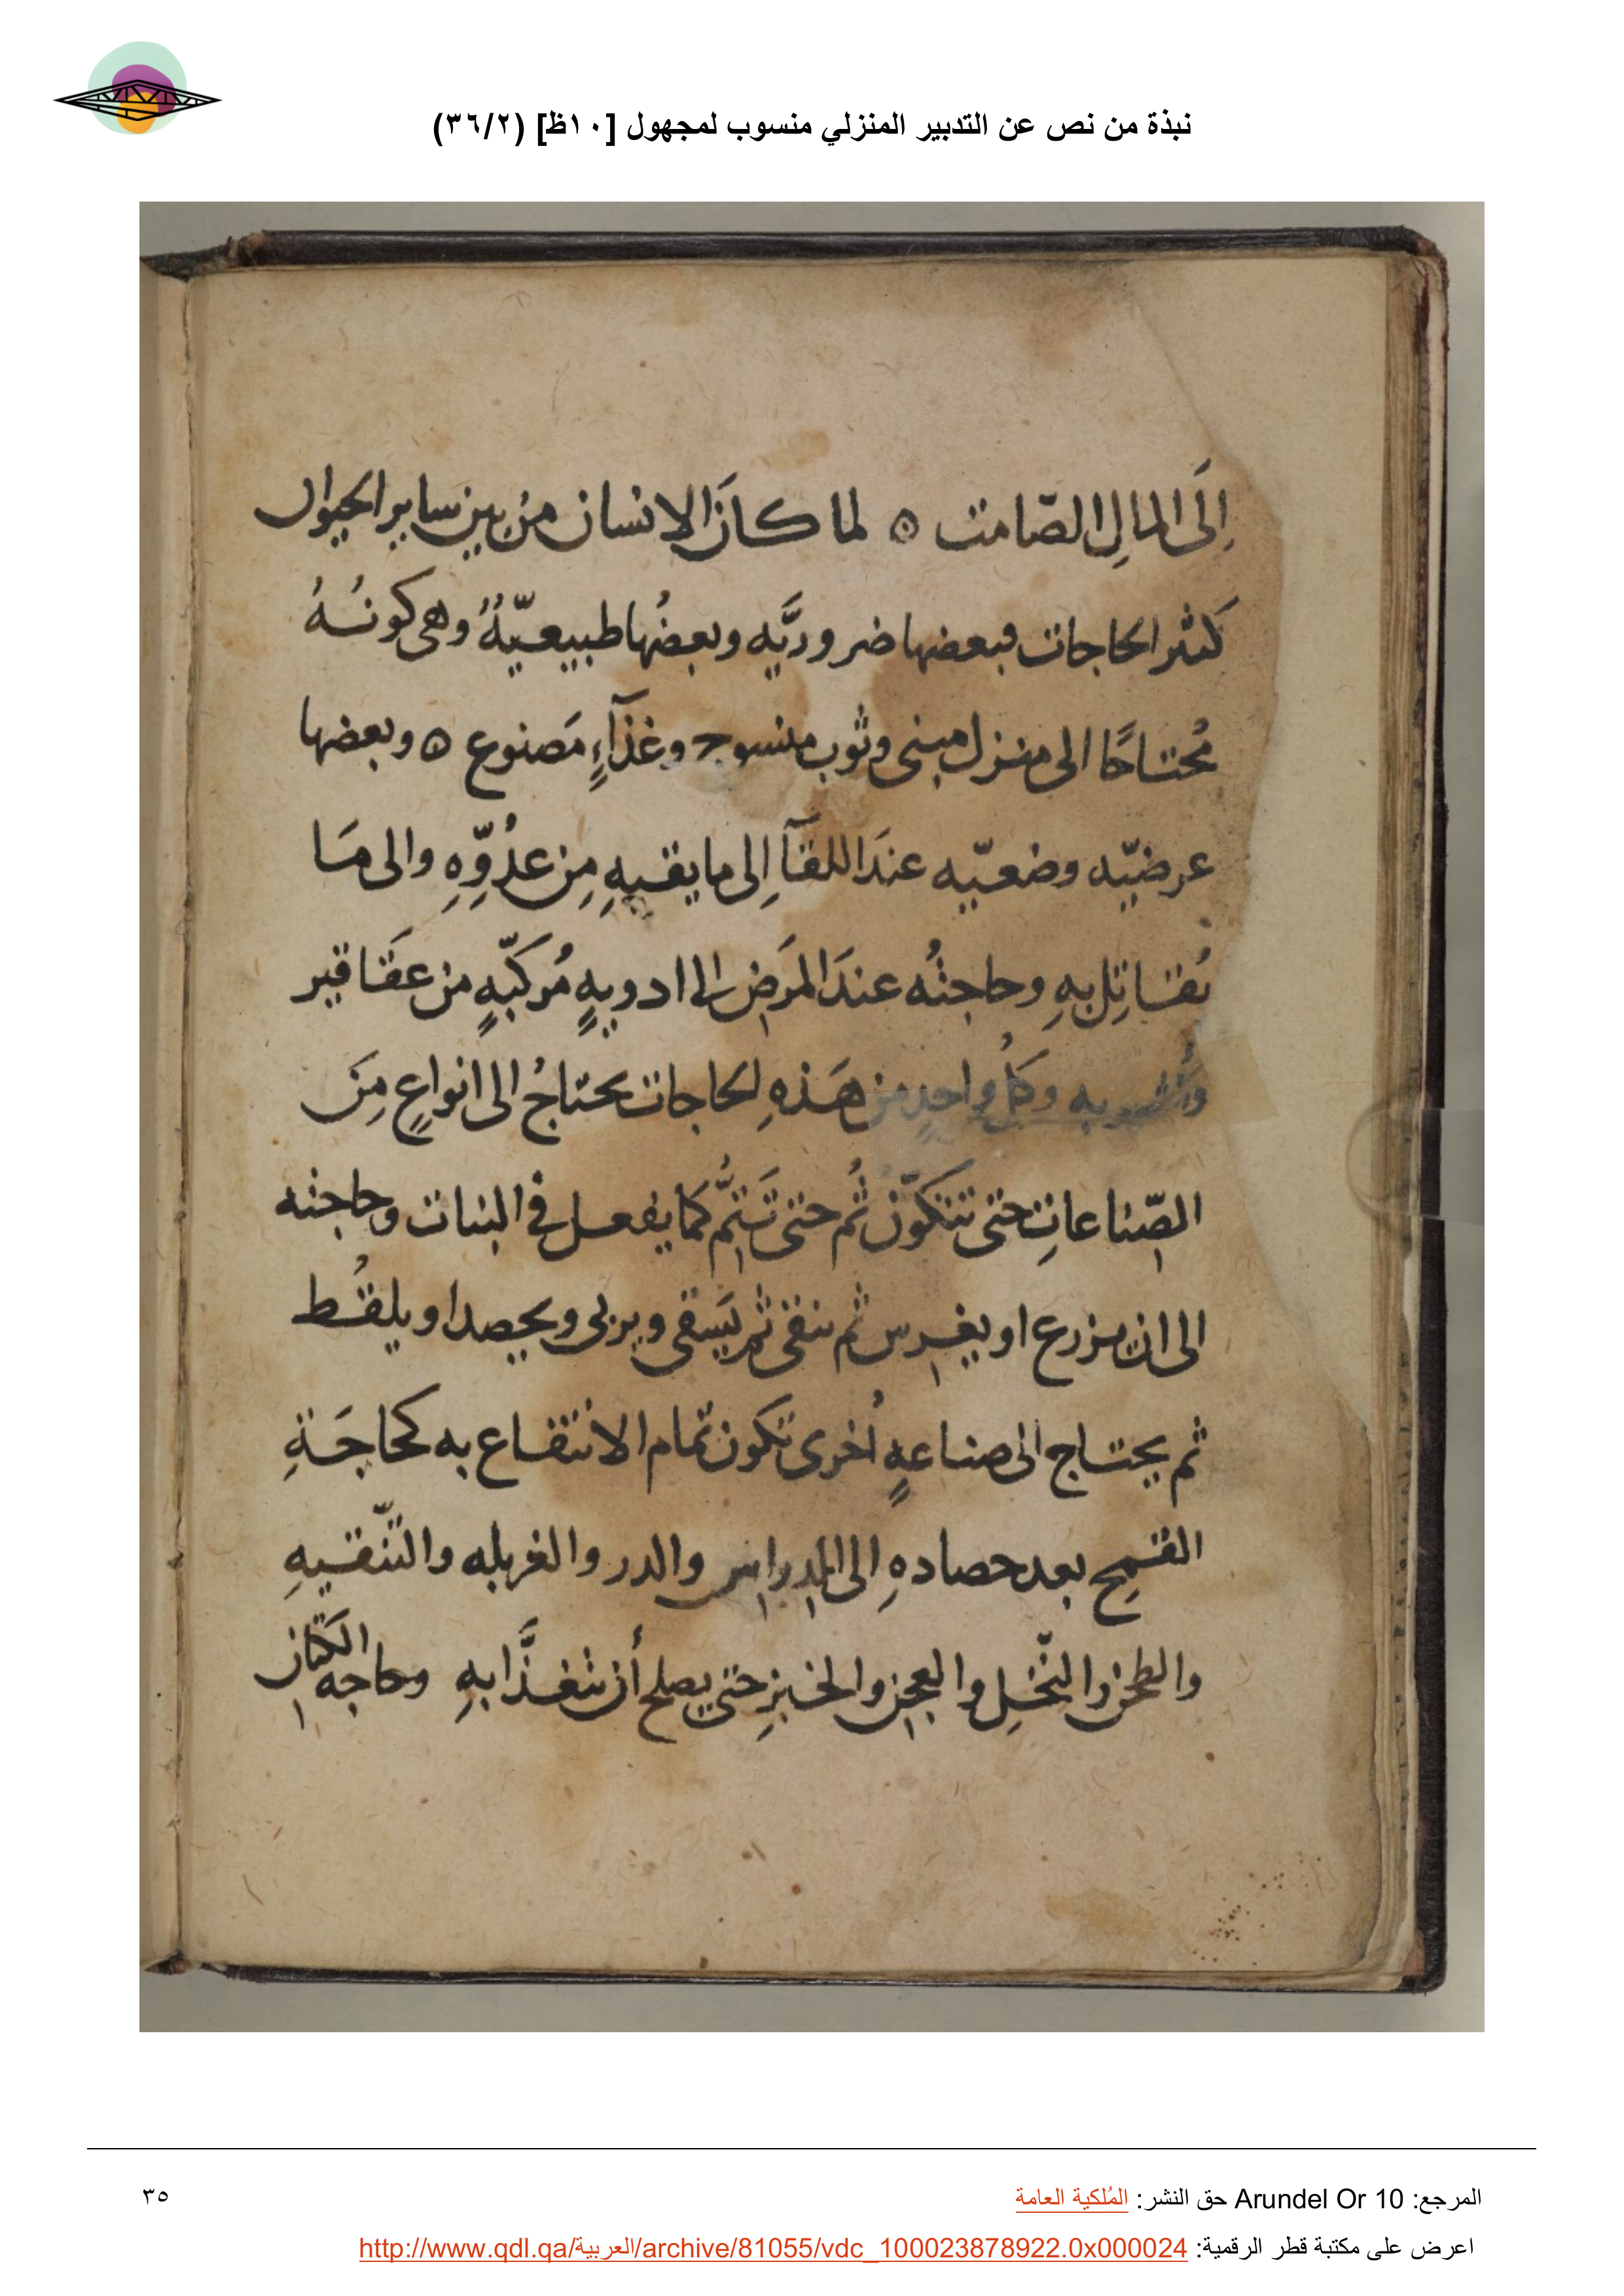 نبذة من نص عن التدبير المنزلي منسوب لمجهول [١٠ظ] (٣٦/٢)
إلَى المالِ الصّامت ه لما كانَ الانسان منْ بين ساير الحيوان
كَثير الحاجات فبعضها ضروريَّه وبعضُها طبيعيّةُ وهى كونُهُ
مُحتاجًا الى منزل مبنى وثوب منسوج وغذآءٍ مَصنوع ه وبعضها
عرضيّه وضعيّه عندَ اللقآ إلى ما يقيهِ مِن عدُوّهِ والى مَا
يُقاتِل بهِ وحاجتُه عندَ المرَض الى ادويهٍ مُركبّهٍ من عَقاقير
وأشربه وكلُ واحدٍ من هَذهِ الحاجات يحتاجُ الى انواعٍ مِنَ
الصّناعاتِ حتى تتكوّن ثُم حتى تَتمُّ كما يفعل فى النبات وحاجته
الى ان يزرع او يغرس ثم ينقى ثم يَسقى ويربى ويحصد او يلقُط
ثم يحتاج الى صناعهٍ أُخرى تكون تمام الانتفاع به كحاجَةِ
القمح بعد حصادهِ الى الدراس والدر والغربله والتّنقيهِ
والطحن والنّخل والعجن والخبزِ حتى يصلح أن يتغذَّا بهِ وحاجه الكتان
المرجع: Arundel Or 10 حق النشر: المُلكية العامة
٣٥
اعرض على مكتبة قطر الرقمية: http://www.qdl.qa/العربية/archive/81055/vdc_100023878922.0x000024